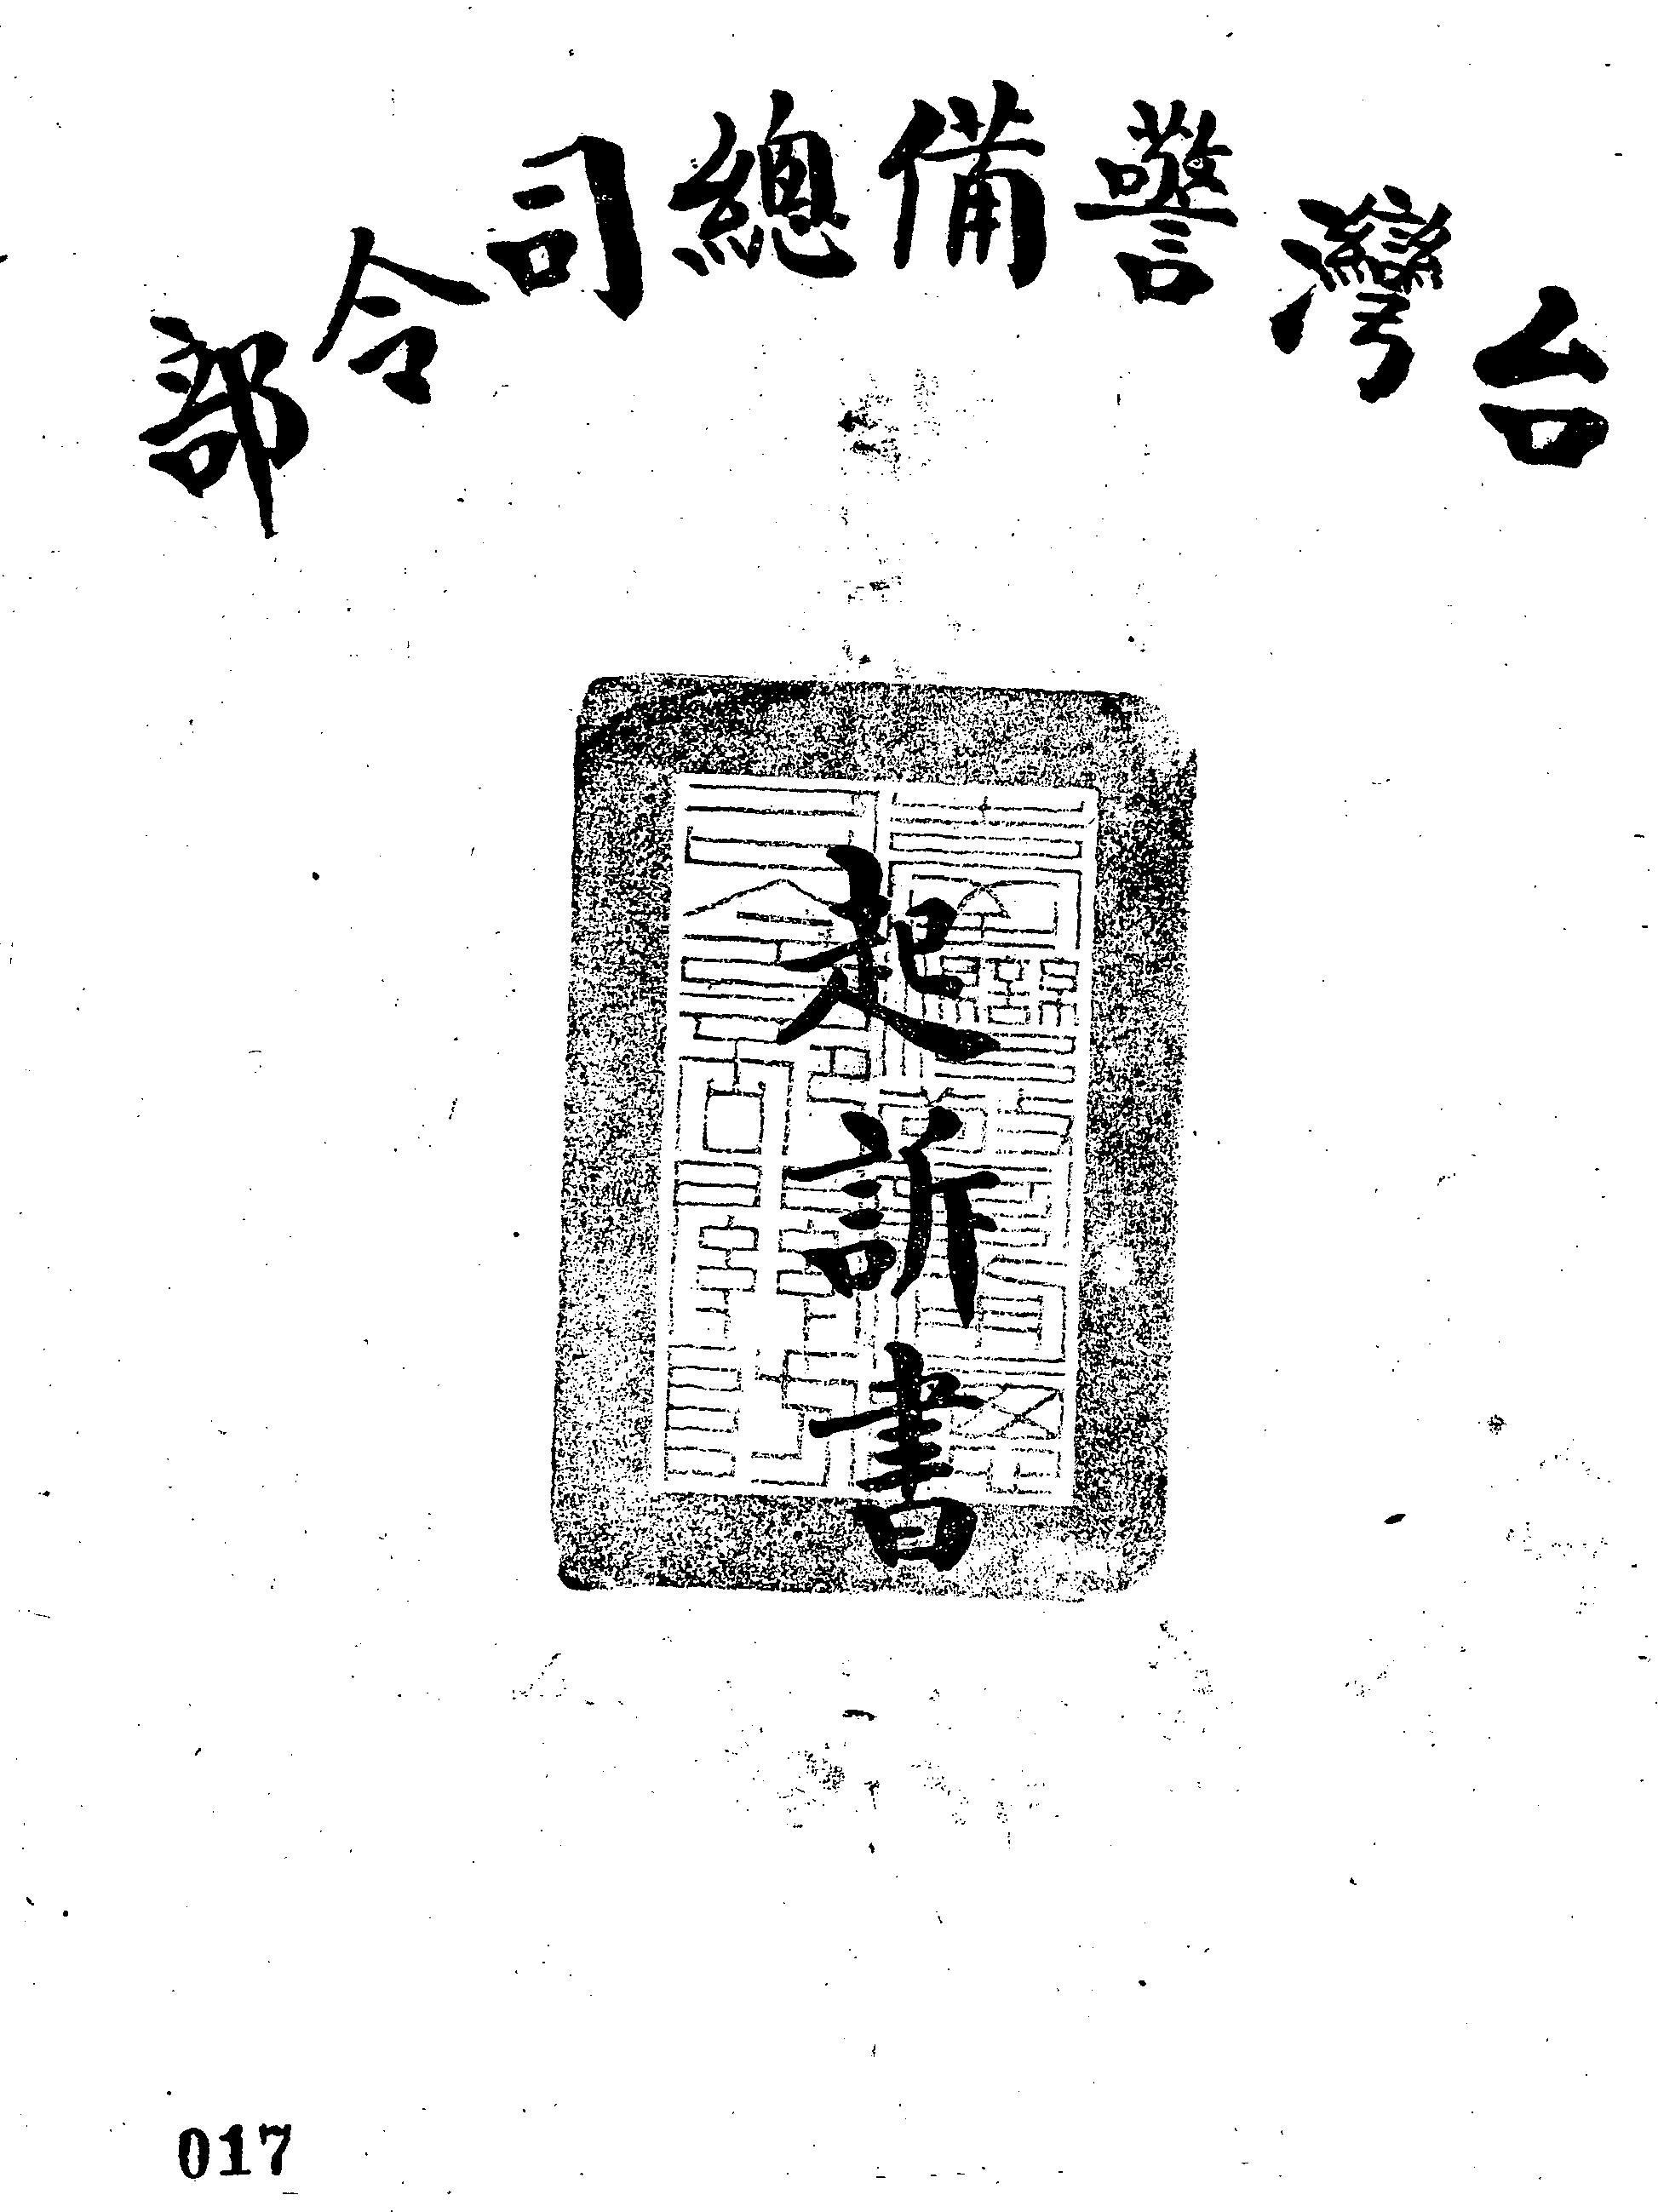 台灣警備總司令部
起訴書
017